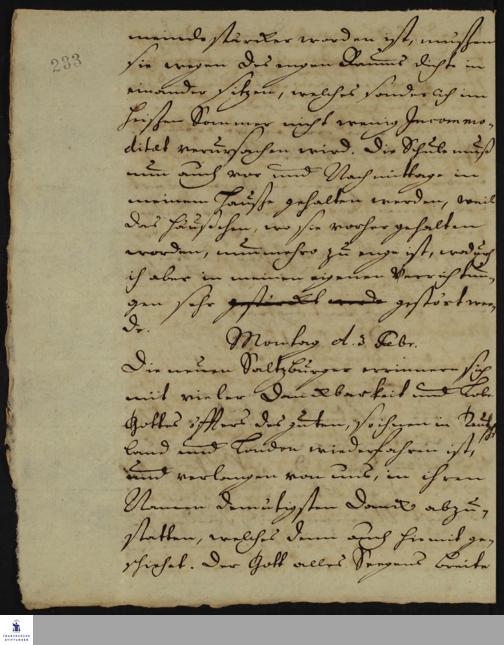 233
meinde stärcker worden ist, müssen
sie wegen des engen Raums dichte in
einander sitzen, welches sonderlich im
heißen Sommer nicht wenig Incommo-
ditat verursachen wird. Die Schule muß
nun auch vor und Nachmittage in
meinem Hause gehalten werden, weil
das Häußchen, wo sie vorher gehalten
worden, nunmehro zu enge ist, wodurch
ich aber in meinen eigenen Verrichtun-
gen sehr gestört wer-
de.
Montag d. 3 Febr.
Die neuen Saltzburger erinnern sich
mit vieler Danckbarkeit und Lobe
Gottes öffters des guten, so ihnen in Teutsch-
land und London wiederfahren ist,
und verlangen von uns, in ihren
Namen demütigsten Danck abzu-
statten, welches denn auch hiemit ge-
schiehet. Der Gott alles Seegens breite
FRANCKESCHE
STIFTUNGEN